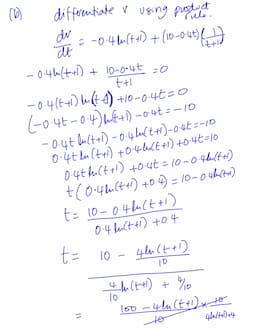 (b) differentiate v using product rule.
dv/dt = -0.4ln(t+1) + (10-0.4t)(1/(t+1))
-0.4ln(t+1) + (10-0.4t)/(t+1) = 0
-0.4(t+1)ln(t+1) + 10-0.4t = 0
(-0.4t-0.4)ln(t+1)-0.4t = -10
-0.4t ln(t+1) - 0.4ln(t+1) - 0.4t = -10
0.4t ln(t+1) + 0.4ln(t+1) + 0.4t = 10
0.4t ln(t+1) + 0.4t = 10 - 0.4ln(t+1)
t(0.4ln(t+1) + 0.4) = 10 - 0.4ln(t+1)
t = (10 - 0.4ln(t+1))/(0.4ln(t+1) + 0.4)
t = (10 - 4ln(t+1)/10)/(4/10 ln(t+1) + 4/10)
= (100 - 4ln(t+1))/10 × 10/(4ln(t+1)+4)